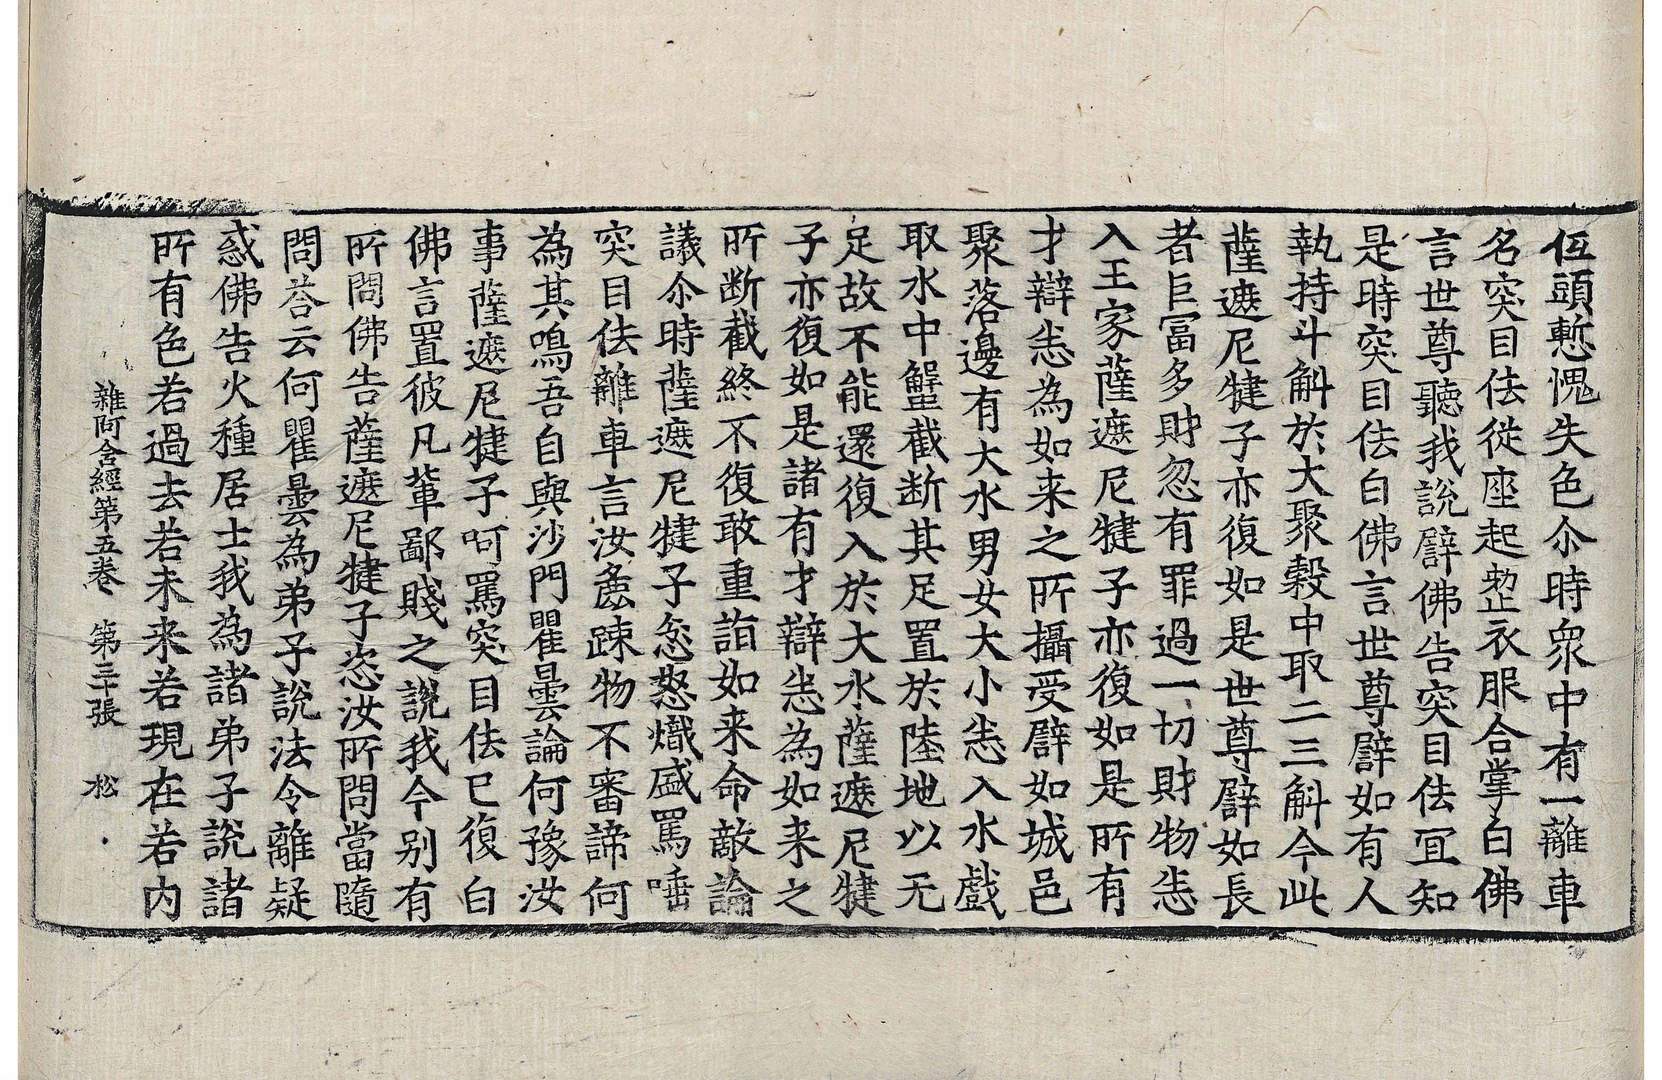 伍頭慙愧失色尒時衆中有一離車
名突目佉從座起整衣服合掌白佛
言世尊聽我說譬佛告突目佉宜知
是時突目佉白佛言世尊譬如有人
執持斗斛於大聚穀中取二三斛今此
薩遮尼犍子亦復如是世尊譬如長
者巨富多財忽有罪過一切財物悉
入王家薩遮尼犍子亦復如是所有
才辯悉為如来之所攝受譬如城邑
聚落邊有大水男女大小悉入水戲
取水中蟹截断其足置於陸地以无
足故不能還復入於大水薩遮尼犍
子亦復如是諸有才辯悉為如来之
所断截終不復敢重詣如来命敵論
議尒時薩遮尼犍子忿怒熾盛罵唾
突目佉離車言汝麁踈物不審諦何
為其鳴吾自與沙門瞿曇論何豫汝
事薩遮尼犍子呵罵突目佉已復白
佛言置彼凡輩鄙賤之說我今别有
所問佛告薩遮尼犍子恣汝所問當隨
問荅云何瞿曇為弟子說法令離疑
惑佛告火種居士我為諸弟子說諸
所有色若過去若未来若現在若内
雜阿含經第五卷 第三十張 松